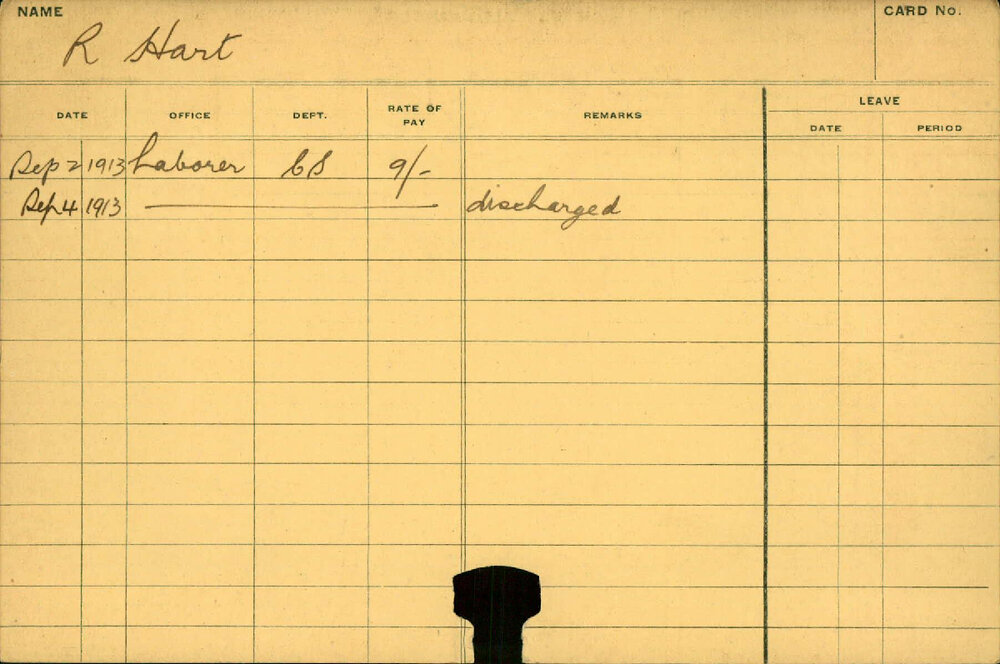 NAME
CARD No.
R Hart
DATE OFFICE DEPT. RATE OF PAY REMARKS LEAVE
DATE PERIOD
Sep 2 1913 Laborer CS 9/-
Sep 4 1913 discharged